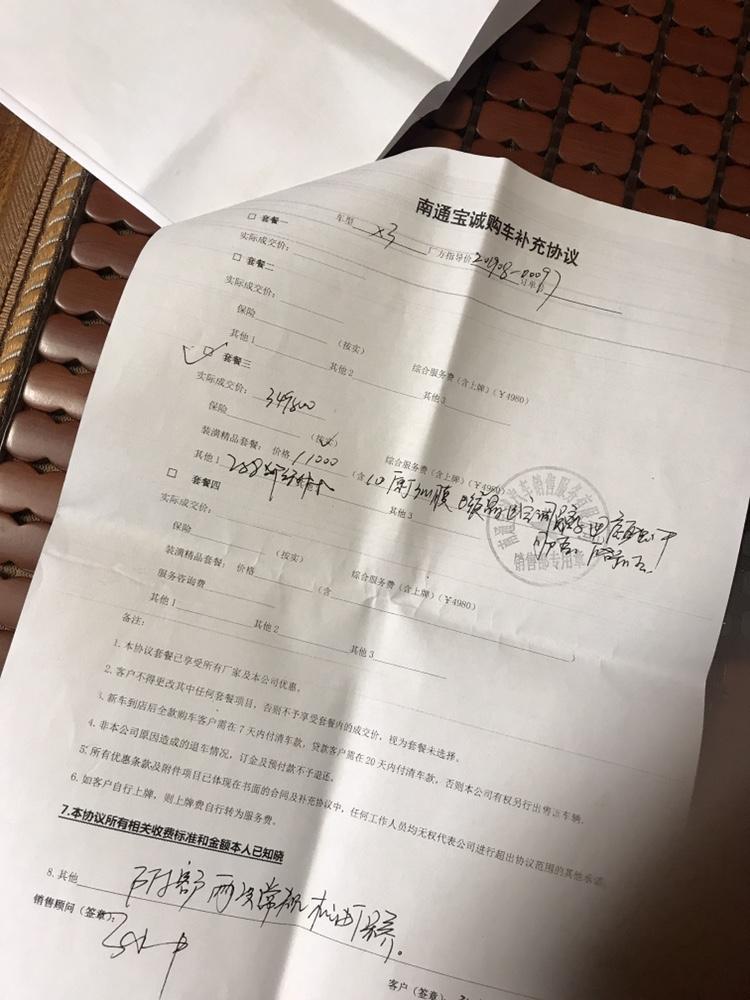 南通宝诚购车补充协议
□ 套餐一 车型 X3 厂方指导价 订单号 201908-0097
实际成交价:
□ 套餐二
实际成交价:
保险 (按实) 综合服务费(含上牌)(¥4980)
其他1 其他2 其他3
✓ □ 套餐三
实际成交价: 349800
保险 (按实) 综合服务费(含上牌)(¥4980)
装潢精品套餐: 价格 11000 (含
其他1 其他3
□ 套餐四
实际成交价:
保险 (按实) 综合服务费(含上牌)(¥4980)
装潢精品套餐: 价格 (含 )
服务咨询费
其他1 其他2 其他3
备注:
1. 本协议套餐已享受所有厂家及本公司优惠。
2. 客户不得更改其中任何套餐项目,否则不予享受套餐内的成交价,视为套餐未选择。
3. 新车到店后全款购车客户需在7天内付清车款,贷款客户需在20天内付清车款,否则本公司有权另行出售该车辆.
4. 非本公司原因造成的退车情况,订金及预付款不予退还。
5. 所有优惠条款及附件项目已体现在书面的合同及补充协议中,任何工作人员均无权代表公司进行超出协议范围的其他承诺
6. 如客户自行上牌,则上牌费自行转为服务费。
7.本协议所有相关收费标准和金额本人已知晓
8. 其他 两次常规机油保养。
销售顾问(签章):
客户(签章):
销售部专用章